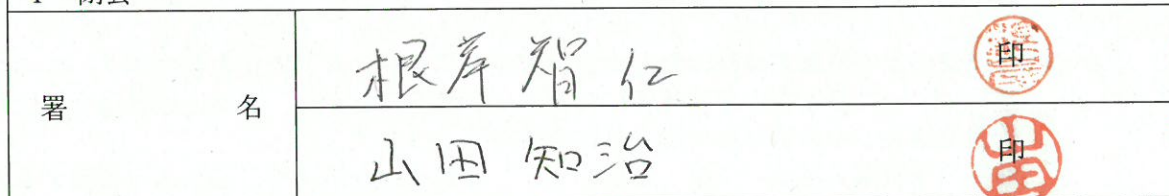 署名
根岸智仁 印
山田知治 印